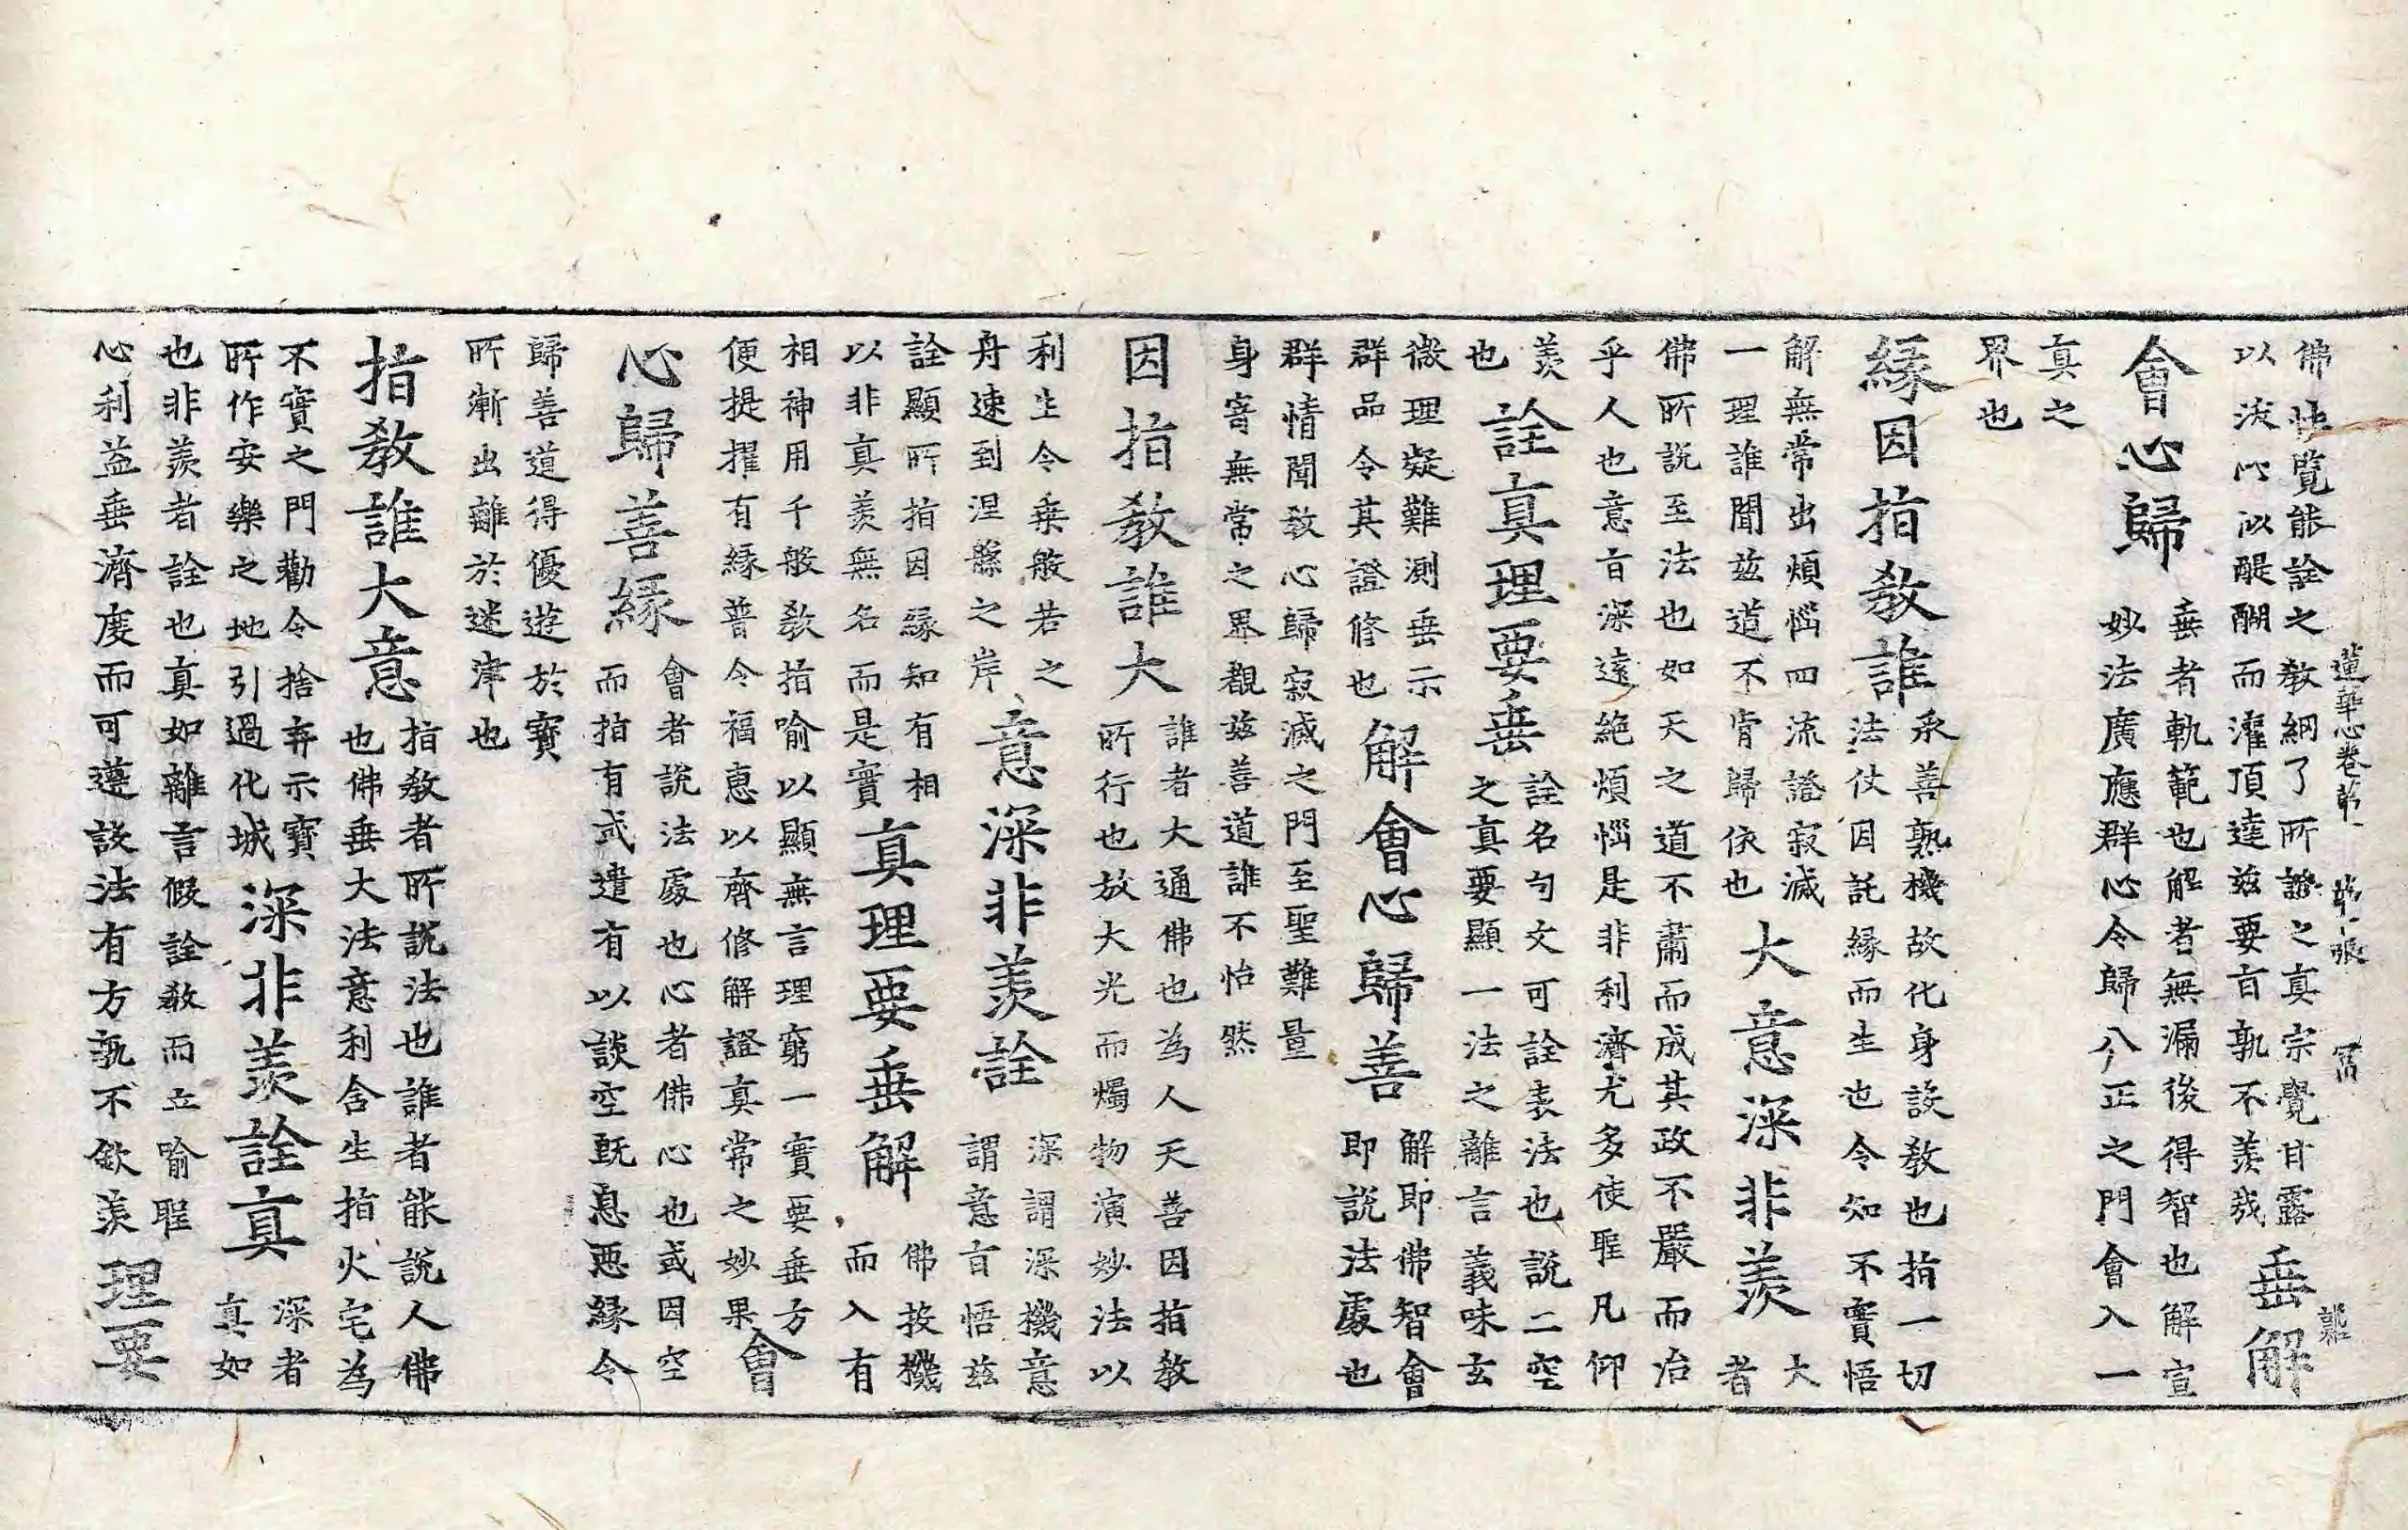 佛性覧能詮之教綱了所證之真宗覺甘露
以淡心以醍醐而灌頂達茲要旨孰不羨哉
垂解
會心歸
垂者軌範也解者無漏後得智也解宣
妙法廣應群心令歸八正之門會入一
真之
界也
縁因指教誰
承善熟機故化身設教也指一切
法仗因託緣而生也令知不實悟
解無常出煩惱四流證寂滅
一理誰聞茲道不背歸依也
大意深非羨
大
者
佛所説至法也如天之道不肅而成其政不嚴而治
乎人也意旨深遠絶煩惱是非利濟尤多使聖凡仰
羨
也
詮真理要垂
詮名句文可詮表法也説二空
之真要顯一法之離言義味玄
微理疑難測垂示
群品令其證修也
解會心歸善
解即佛智會
即説法處也
群情聞教心歸寂滅之門至聖難量
身寄無常之界觀茲善道誰不怡然
因指教誰大
誰者大通佛也為人天善因指教
所行也放大光而燭物演妙法以
利生令乗般若之
舟速到涅槃之岸
意深非羨詮
深謂深機意
謂意旨悟茲
詮顯所指因緣知有相
以非真羨無名而是實
真理要垂解
佛按機
而入有
相神用千般教指喻以顯無言理窮一實要垂方
便提擢有緣普令福惠以齊修解證真常之妙果
會
心歸善縁
會者説法處也心者佛心也或因空
而指有或遣有以談空既息惡緣令
歸善道得優遊於寶
所漸出離於迷津也
指教誰大意
指教者所説法也誰者能説人佛
也佛垂大法意利含生指火宅為
不實之門勸令捨弃示寶
所作安樂之地引過化城
深非羨詮真
深者
真如
也非羨者詮也真如離言假詮教而立喻聖
心利益垂濟度而可遵設法有方孰不欽羨
理要
蓮華心卷苐一
苐一張
冨